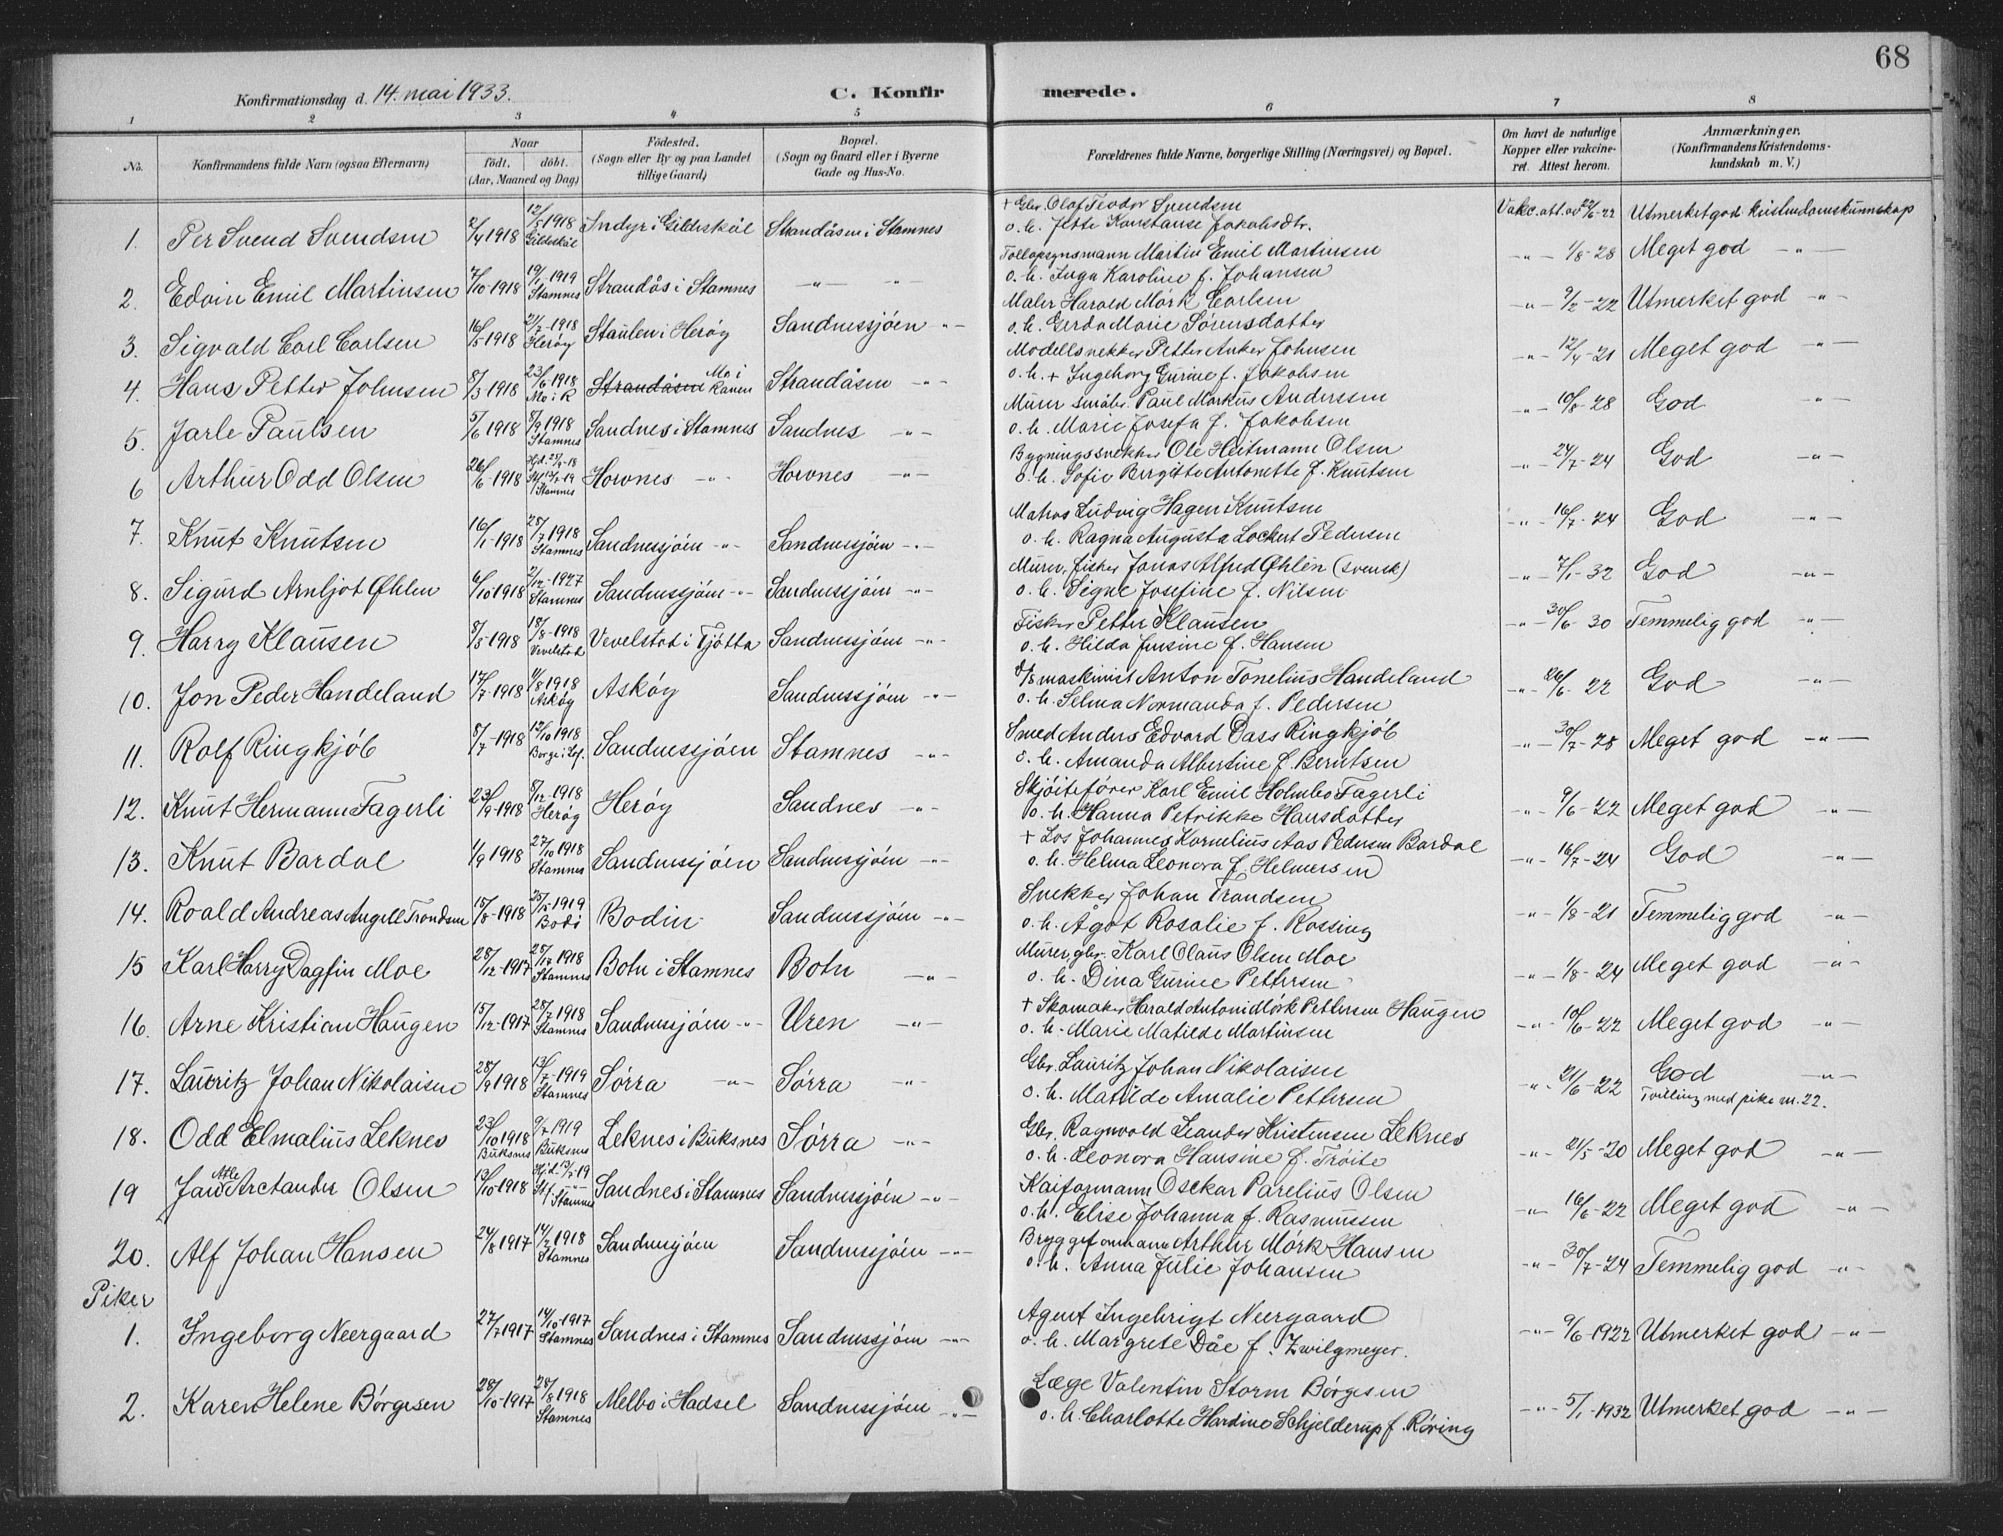 68
Konfirmationsdag d. 14. mai 1933. C. Konfirmerede.
1 2 3 4 5 6 7 8
No. Konfirmandens fulde Navn (ogsaa Efternavn) Naar født. døbt. (Aar, Maaned og Dag) Fødested. (Sogn eller By og paa Landet tillige Gaard) Bopæl. (Sogn og Gaard eller i Byerne Gade og Hus-No. Forældrenes fulde Navne, borgerlige Stilling (Næringsvei) og Bopæl. Om havt de naturlige Kopper eller vakcineret. Attest herom. Anmærkninger. (Konfirmandens Kristendomskundskab m. V.)
1. Per Svend Svendsen 2/4 1918 12/5 1918 Gildeskål Indyr i Gildeskål Strandåsen i Stamnes + Gbr. Olaf Teodor Svendsen o. h. Jette Konstanse Jakobsdtr. Vakc. att. av 22/6-22 Utmerket god kristendomskunnskap
2. Edvin Emil Martinsen 7/10 1918 19/1 1919 Stamnes Strandås i Stamnes -"- -"- Tollopsynsmann Martin Emil Martinsen o. h. Inga Karoline f. Johansen -"- 1/8-28 Meget god -"-
3. Sigvald Carl Carlsen 16/5 1918 21/7-1918 Herøy Staulen i Herøy Sandnessjøen -"- Maler Harald Mørk Carlsen o. h. Gerda Marie Sørensdatter -"- 9/2-22 Utmerket god -"-
4. Hans Petter Johnsen 8/3 1918 23/6-1918 Mo i R Strandåsen Mo i Ranen Strandåsen -"- Modellsnekker Petter Anker Johnsen o. h. + Ingeborg Gurine f. Jakobsen -"- 12/4-21 Meget god -"-
5. Jarle Paulsen 5/6 1918 8/9 1918 Stamnes Sandnes i Stamnes Sandnes -"- Murer småbr. Paul Markus Anderssen o. h. Marie Josefa f. Jakobsen -"- 10/8-28 God -"-
6 Arthur Odd Olsen 26/6 1918 Stamnes Horvnes -"- Horvnes -"- Bygningssnekker Ole Heitmann Olsen o. h. Sofie Bergitte Antonette f. Knutsen -"- 24/7-24 God -"-
7. Knut Knutsen 16/1-1918 28/7 1918 Stamnes Sandnessjøen -"- Sandnessjøen -"- Matros Ludvig Hagen Knutsen o. h. Ragna Augusta Lockert Pedersen -"- 16/7-24 God -"-
8. Sigurd Arnljot Øhlen 6/10 1918 2/12-1927 Stamnes Sandnessjøen -"- Sandnessjøen -"- Murer, fisker Jonas Alfred Øhlén (svensk) o. h. Signe Josefine f. Nilsen -"- 7/1-32 God -"-
9. Harry Klausen 8/5 1918 18/8-1918 Vevelstad Vevelstad i Tjøtta Sandnessjøen -"- Fisker Petter Klausen o. h. Hilda Jensine f. Hansen -"- 30/6-30 Temmelig god -"-
10. Jon Peder Handeland 17/7 1918 4/8 1918 Askøy Askøy Sandnessjøen -"- d/s maskinist Anton Tonelius Handeland o. h. Selma Normanda f. Pedersen -"- 26/6-22 God -"-
11. Rolf Ringkjøb 8/7-1918 12/10 1918 Borge i Lof. Sandnessjøen Stamnes -"- Smed Anders Edvard Dass Ringkjøb o. h. Amanda Albertine f. Berntsen -"- 30/7-28 Meget god -"-
12. Knut Hermann Fagerli 23/9-1918 8/12-1918 Herøy Herøy Sandnes -"- Skjøitefører Karl Emil Holmbo Fagerli o. h. Hanna Petrikke Hansdatter -"- 9/6-22 Meget god -"-
13. Knut Bardal 1/9 1918 27/10 1918 Stamnes Sandnessjøen Sandnessjøen -"- + Los Johannes Kornelius Aas Pedersen Bardal o. h. Helma Leonora f. Helmersen -"- 16/7-24 God -"-
14. Roald Andreas Angell Trondsen 15/8-1918 25/5 1919 Bodø Bodin Sandnessjøen -"- Snekker Johan Trondsen o. h. Ågot Rosalie f. Rossing -"- 1/8-21 Temmelig god -"-
15 Karl Harry Dagfin Moe 28/12-1917 28/7-1918 Stamnes Botn i Stamnes Botn -"- Murer, gbr. Karl Claus Olsen Moe o. h. Dina Gurine Pettersen -"- 1/8-24 Meget god -"-
16. Arne Kristian Haugen 15/12-1917 28/7-1918 Stamnes Sandnessjøen -"- Uren -"- + Skomaker Harald Antoni Mørk Pettersen Haugen o. h. Marie Matilde Martinsen -"- 10/6-22 Meget god -"-
17. Lauritz Johan Nikolaisen 28/9 1918 13/7-1919 Stamnes Sørra -"- Sørra -"- Gbr. Lauritz Johan Nikolaisen o. h. Matilde Amalie Pettersen -"- 21/6-22 God -"- Tvilling med pike nr. 22.
18. Odd Elmalius Leknes 23/10 1918 Buksnes 9/7-1919 Buksnes Leknes i Buksnes Sørra -"- Gbr. Ragnvald Leander Kristensen Leknes o. h. Leonora Hansine f. Trøite -"- 21/5-20 Meget god -"-
19 Jan Atle Arctander Olsen 13/10 1918 Stamnes Sandnes i Stamnes Sandnessjøen -"- Kaiformann Osckar Parelius Olsen o. h. Elise Johanna f. Rasmussen -"- 16/6-22 Meget god -"-
20. Alf Johan Hansen 24/8 1917 14/7-1918 Stamnes Sandnessjøen Sandnessjøen -"- Bryggeformann Arthur Mørk Hansen o. h. Anna Julie Johansen -"- 30/7-24 Temmelig god -"-
Piker
1. Ingeborg Neergaard 27/7 1917 14/10-1917 Stamnes Sandnes i Stamnes Sandnessjøen -"- Agent Ingebrigt Neergaard o. h. Margrete Dåe f. Zwilgmeyer. -"- 9/6-1922 Utmerket god -"-
2. Karen Helene Børgesen 28/10-1917 24/8 1918 Stamnes Melbo i Hadsel Sandnessjøen -"- Læge Valentin Storm Børgesen o. h. Charlotte Hardine Schjelderup f. Røring -"- 5/1-1932 Utmerket god -"-